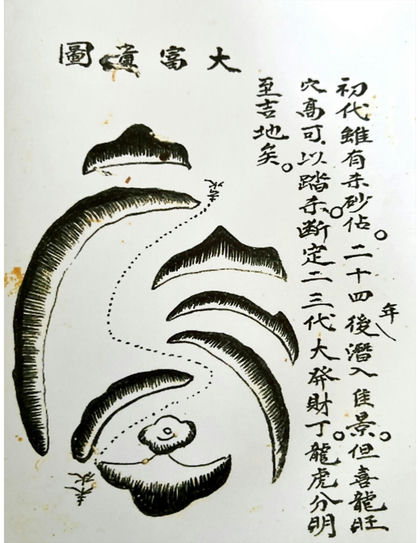 大富貴圖
初代雖有未砂佔。二十四年後潛入佳景。但喜龍旺
穴高可以踏未。断定二三代大發財丁。龍虎分明
至吉地矣。